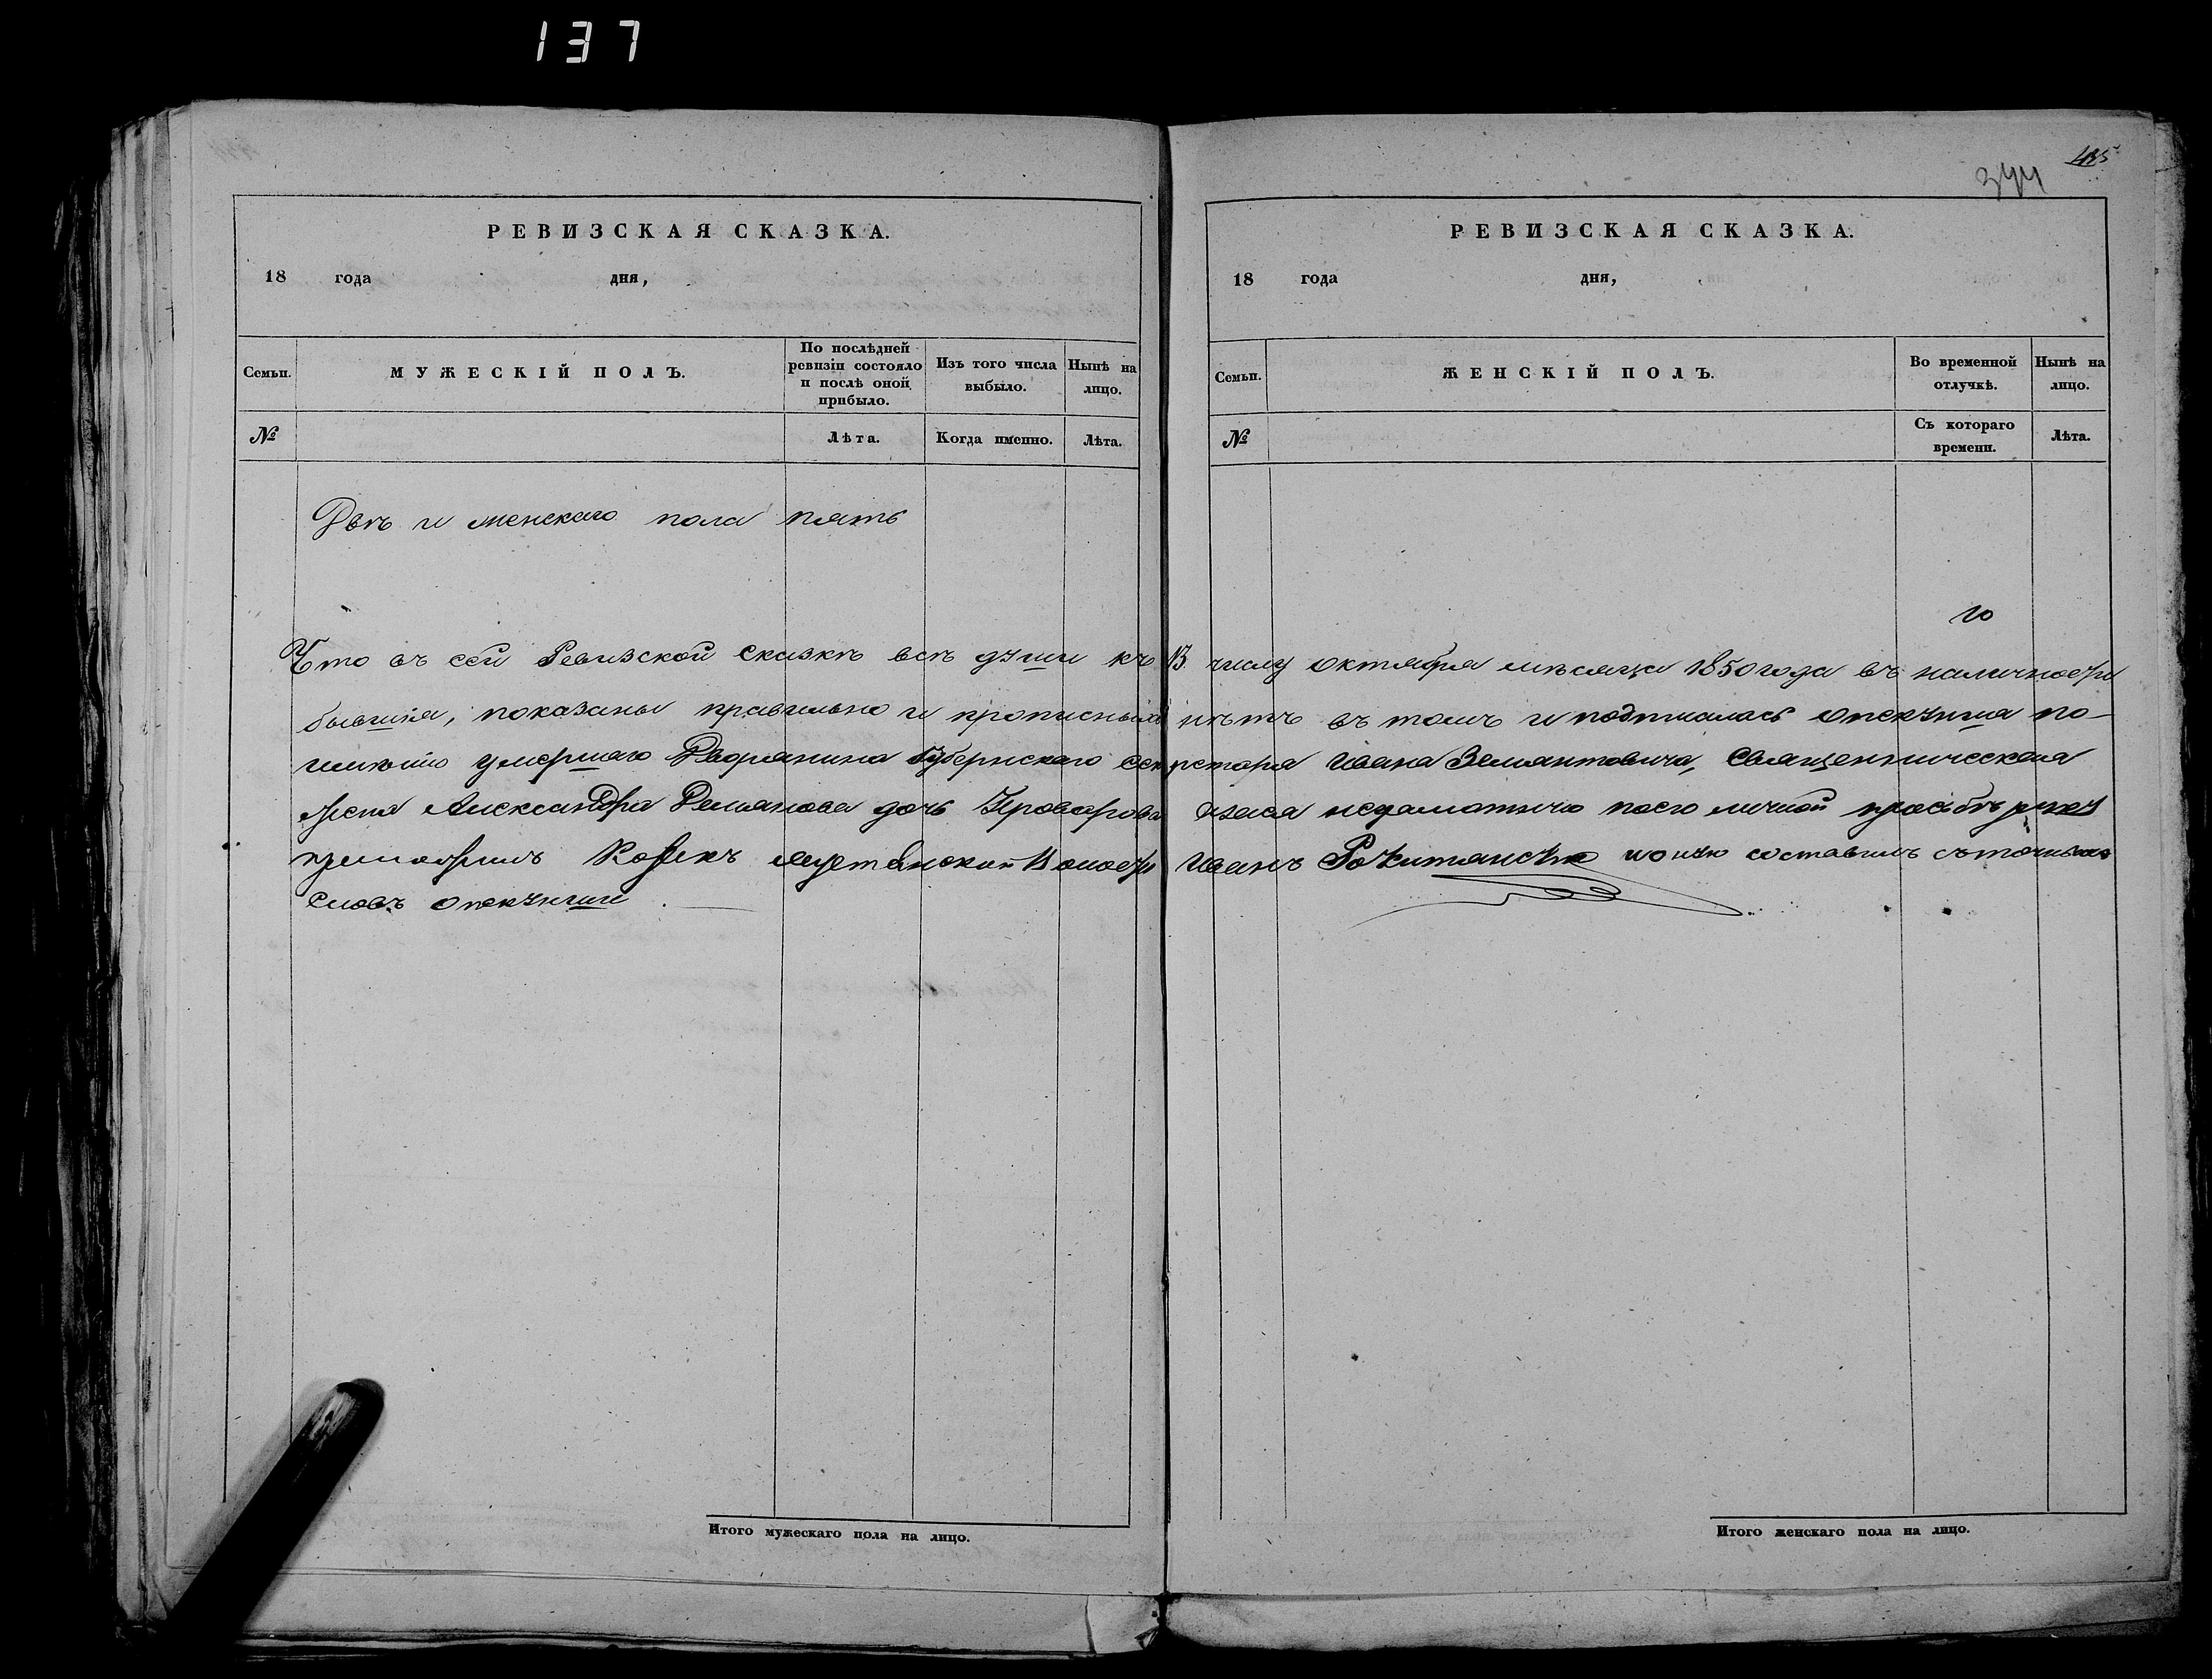 137
344
435
РЕВИЗСКАЯ СКАЗКА.
18 года дня,
Семьи. МУЖЕСКІЙ ПОЛЪ. По послѣдней ревизіи состояло и послѣ оной прибыло. Изъ того числа выбыло. Нынѣ на лицо.
№ Лѣта. Когда именно. Лѣта.
РЕВИЗСКАЯ СКАЗКА.
18 года дня,
Семьи. ЖЕНСКІЙ ПОЛЪ. Во временной отлучкѣ. Нынѣ на лицо.
№ Съ котораго времени. Лѣта.
Двѣ и женскаго пола пять
Что въ сей Ревизской сказкѣ всѣ души къ 13. числу октября мѣсяца 1850 года въ наличности
бывшія, показаны правильно и прописныхъ нѣтъ въ томъ и подписалась опекунша по-
имѣнію умершаго Дворянина Губернскаго секретаря Ивана Священническая
Александра Демянова дочь личной просьбѣ
Иванъ составилъ
словъ опекунши
Итого мужескаго пола на лицо.
Итого женскаго пола на лицо.